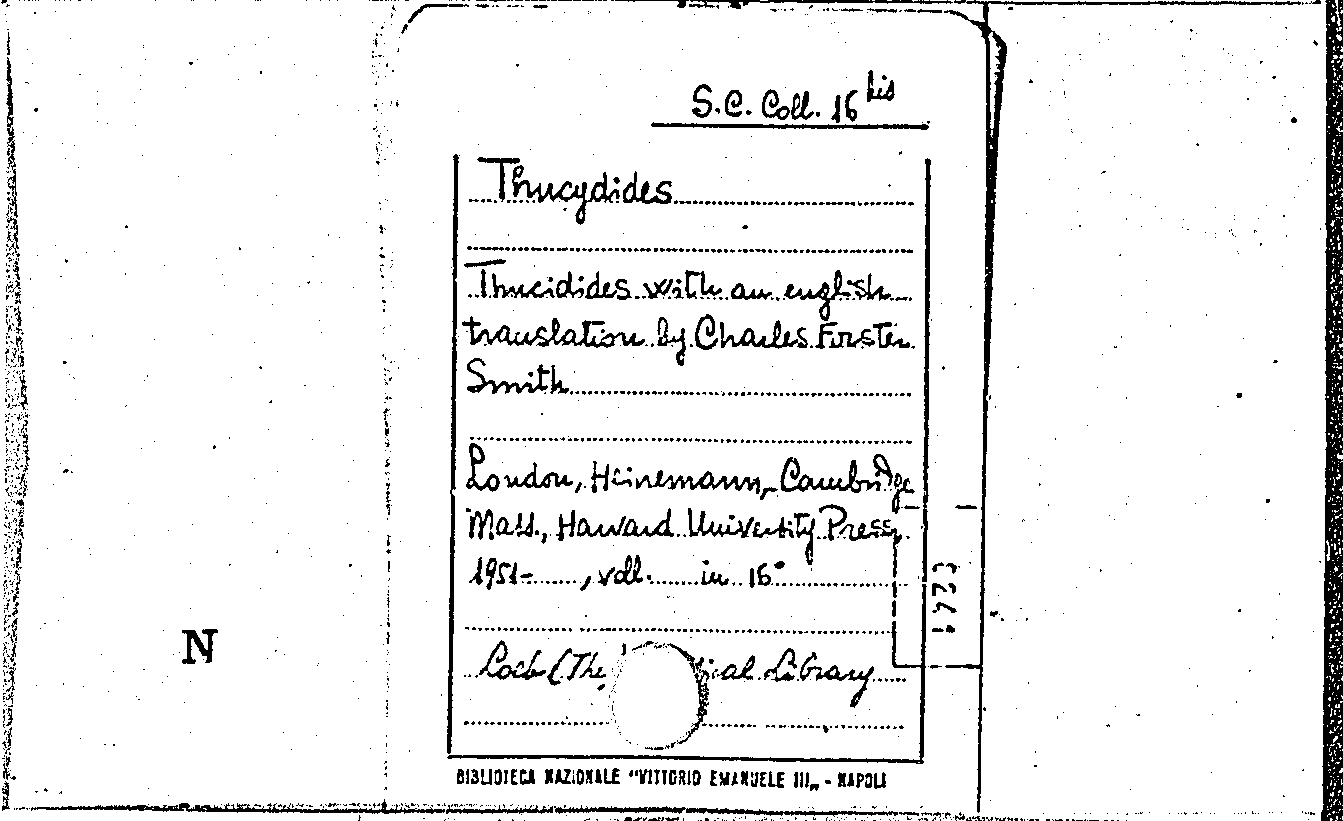 S.C. Coll. 16 bis
Thucydides
Thucidides with an english
translation by Charles Forster
Smith
London, Heinemann, Cambridge
Mass., Harvard University Press,
1951- , voll. in 16°
Loeb (The ical Library
N
BIBLIOTECA NAZIONALE "VITTORIO EMANUELE III„ - NAPOLI